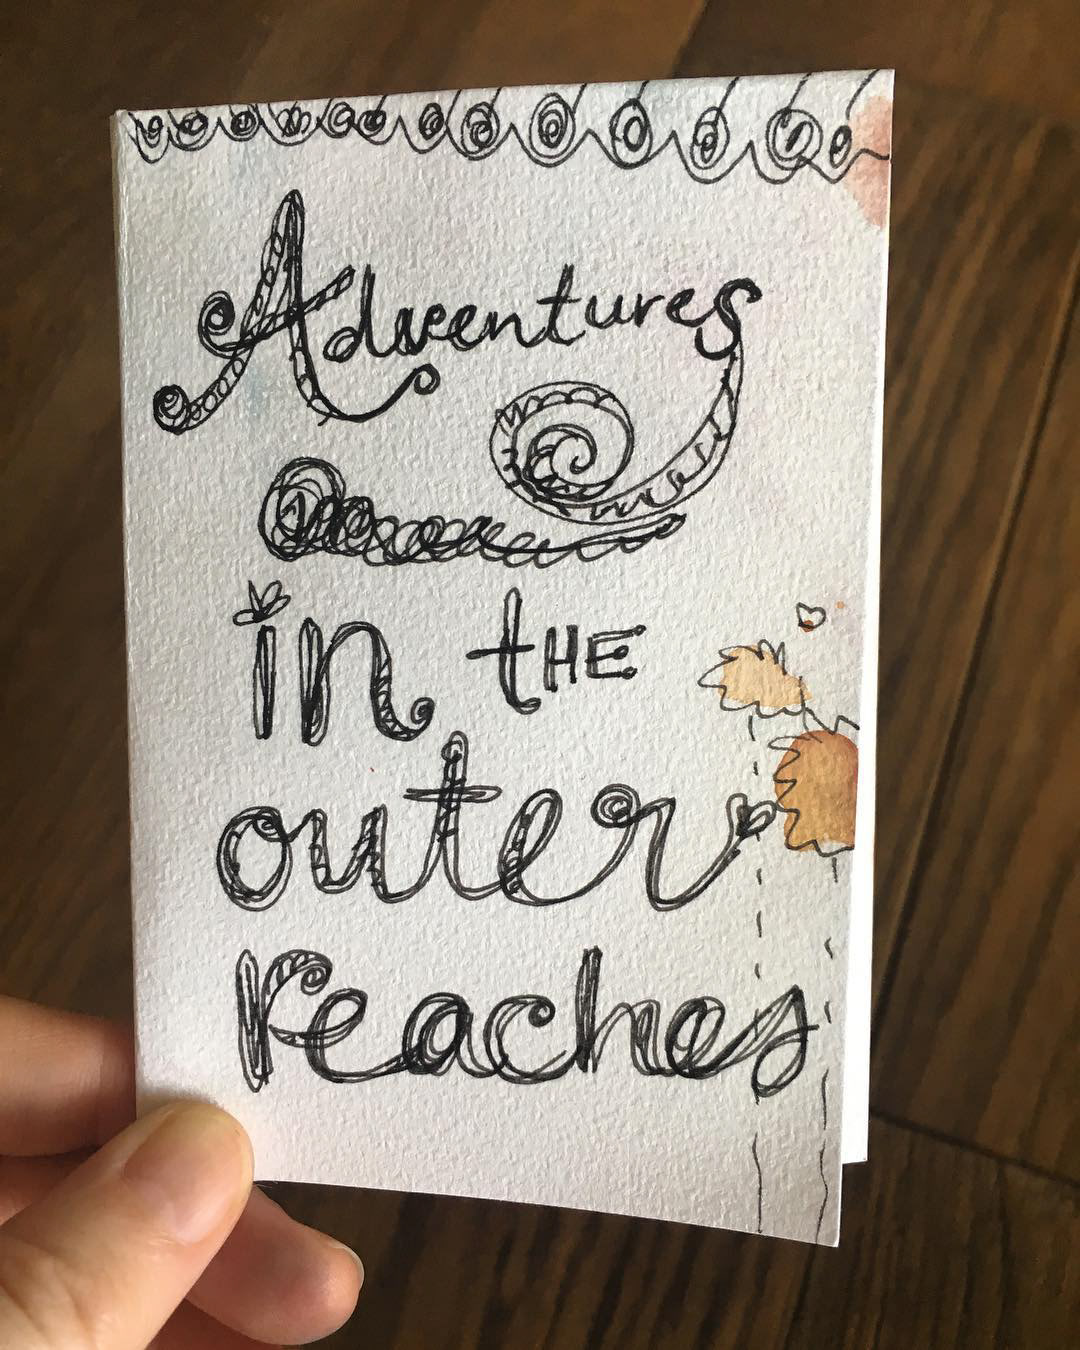 Adventures
in tHE
outer
reaches